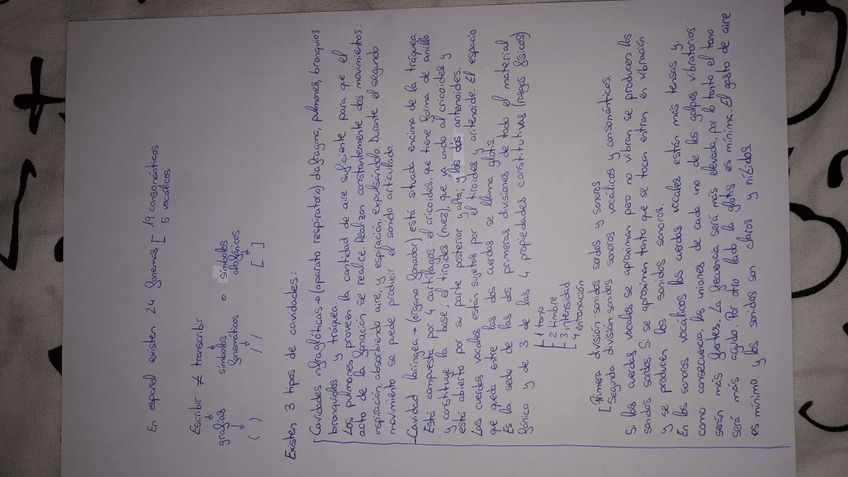 En español existen 24 fonemas [ 19 consonánticos
5 vocálicos
Escribir ≠ transcribir
grafías símbolos fonemáticos o símbolos alofónicos
( ) / / [ ]
Existen 3 tipos de cavidades:
Cavidades infraglóticas → (aparato respiratorio) diafragma, pulmones, bronquios
bronquiolos y tráquea
Los pulmones proveen la cantidad de aire suficiente para que el
acto de la fonación se realice. Realizan constantemente dos movimientos:
inspiración, absorbiendo aire, y espiración, expulsándolo. Durante el segundo
movimiento se puede producir el sonido articulado.
Cavidad laríngea → (órgano fonador) está situada encima de la tráquea
Está compuesta por 4 cartílagos: el cricoides, que tiene forma de anillo
y constituye la base; el tiroides (nuez), que va unido al cricoides y
está abierto por su parte posterior y alta; y los dos aritenoides.
Las cuerdas vocales están sujetas por el tiroides y aritenoide. El espacio
que queda entre las dos cuerdas se llama glotis.
Es la sede de las dos primeras divisiones de todo el material
fónico y de 3 de las 4 propiedades constitutivas (rasgos físicos)
[ 1 tono
2 timbre
3 intensidad
4 entonación
[ Primera división sonidos sordos y sonoros
Segunda división sonidos sonoros vocálicos y consonánticos.
Si las cuerdas vocales se aproximan pero no vibran se producen los
sonidos sordos. Si se aproximan tanto que se tocan entran en vibración
y se producen los sonidos sonoros.
En los sonoros vocálicos las cuerdas vocales están más tensas y,
como consecuencia, las uniones de cada uno de los golpes vibratorios
serán más fuertes. La frecuencia será más elevada, por lo tanto el tono
será más agudo. Por otro lado la glotis es mínima. El gasto de aire
es mínimo y los sonidos son claros y nítidos.